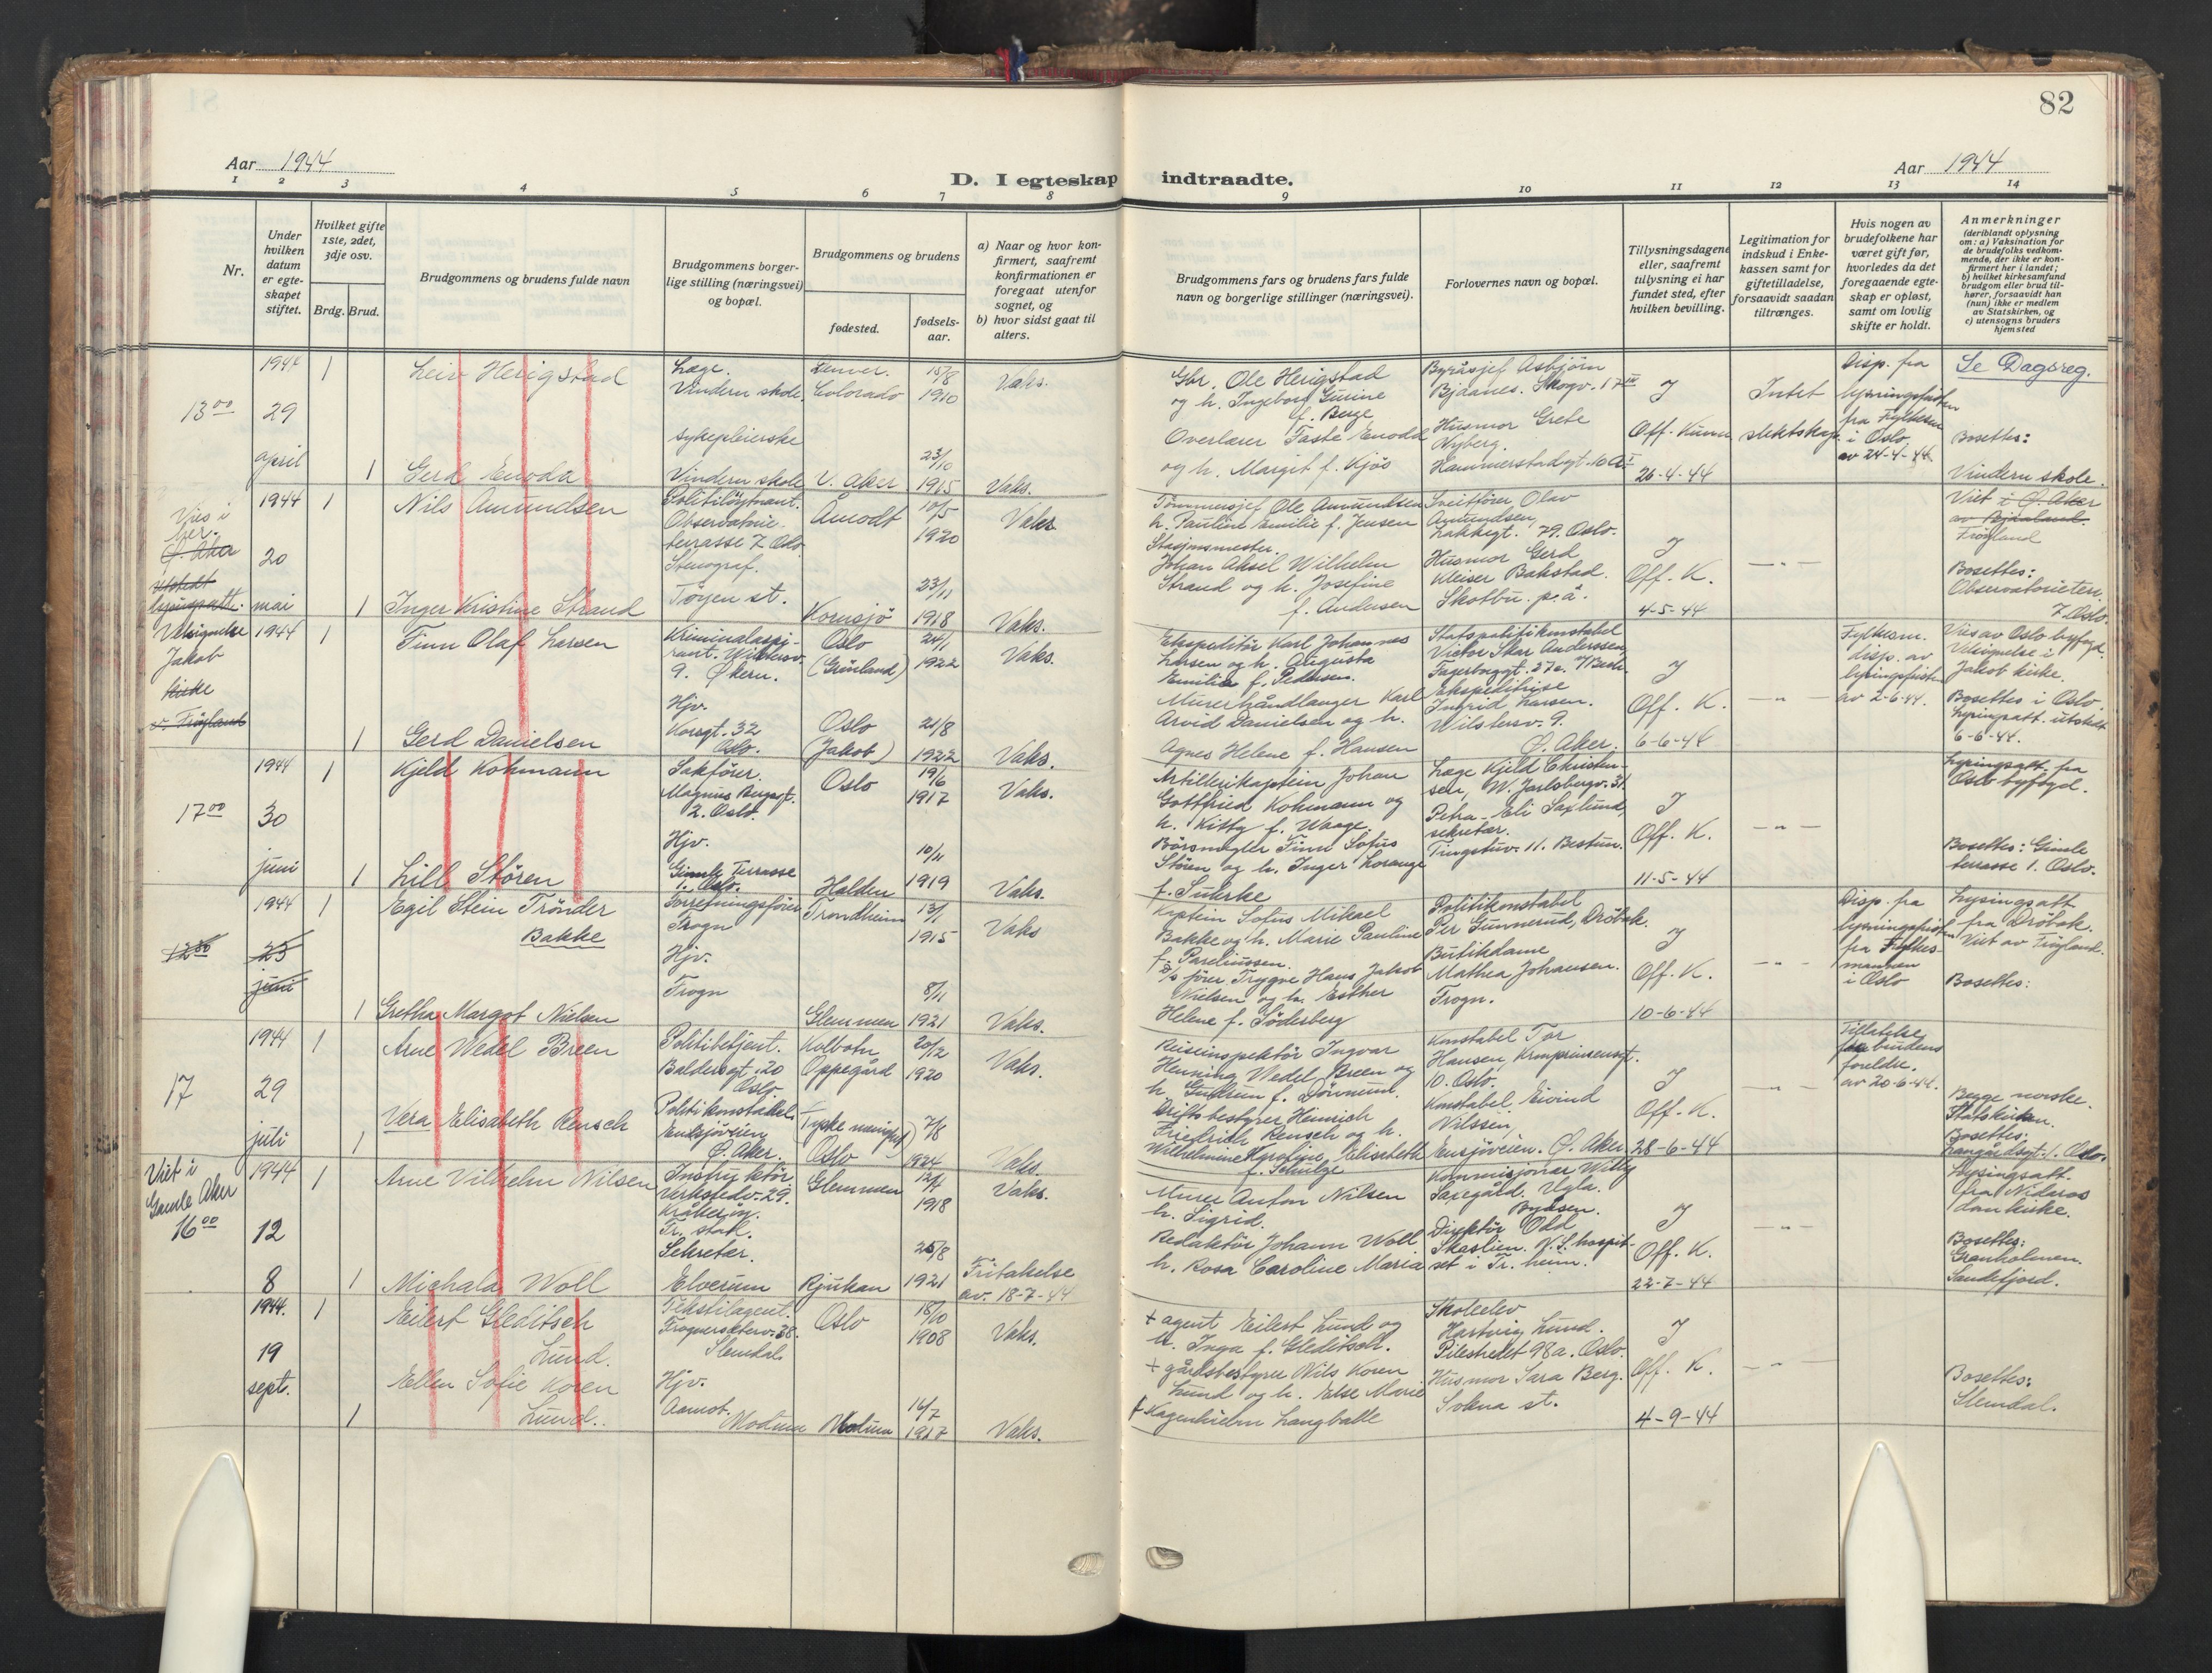 82
Aar 1944
D. I egteskap indtraadte.
Aar 1944
1 2 3 4 5 6 7 8 9 10 11 12 13 14
Nr.
Under hvilken datum er egte-skapet stiftet.
Hvilket gifte 1ste, 2det, 3dje osv.
Brdg. Brud.
Brudgommens og brudens fulde navn
Brudgommens borger-lige stilling (næringsvei) og bopæl.
Brudgommens og brudens
fødested.
fødsels-aar.
a) Naar og hvor kon-firmert, saafremt konfirmationen er foregaat utenfor sognet, og
b) hvor sidst gaat til alters.
Brudgommens fars og brudens fars fulde navn og borgerlige stillinger (næringsvei).
Forlovernes navn og bopæl.
Tillysningsdagene eller, saafremt tillysning ei har fundet sted, efter hvilken bevilling.
Legitimation for indskud i Enke-kassen samt for giftetilladelse, forsaavidt saadan tiltrænges.
Hvis nogen av brudefolkene har været gift før, hvorledes da det foregaaende egte-skap er opløst, samt om lovlig skifte er holdt.
Anmerkninger
(deriblandt oplysning om: a) Vaksination for de brudefolks vedkom-mende, der ikke er kon-firmert her i landet; b) hvilket kirkesamfund brudgom eller brud til-hører, forsaavidt han (hun) ikke er medlem av Statskirken, og c) utensogns bruders hjemsted
13 00
1944
29
april
1
Leiv Herigstad
Læge.
Vindern skole.
Denver.
Colorado
15/8
1910
Vaks.
Gbr. Ole Herigstad
og h. Ingeborg Gurine
f. Berge
Byråsjef Asbjørn
Bjdanes. Skogv. 17 III
J
Intet
slektskap
Disp. fra
lysningsfristen
fra Fylkesm
i Oslo
av 24-4-44.
Se Dagsreg.
1
Gerd Enoda
sykepleierske
Vindern skole
V. Aker
23/10
1915
Vaks.
Overlærer Taste Enoda
og h. Margit f. Kjøs
Husmor Grete
Nyberg.
Hammerstadgt. 10 A I
Off. Kunn
26-4-44
Bosettes:
Vindern skole.
Vies i
her.
Ø. Aker
Utstedt
lysingsatt.
1944
20
mai
1
Nils Amundsen
Politiløytnant.
Observatorie-
terrasse 7 Oslo
Åmodt
10/5
1920
Vaks
Tømmersjef Ole Amundsen
h. Pauline Emilie f. Jensen
Olav
Amundsen,
Lakkegt. 79. Oslo.
J
Viet i Ø. Aker
av Bjaaland.
Frøyland
1
Inger Kristine Strand
Stenograf.
Tøyen st.
Kornsjø
23/11
1918
Vaks.
Stasjonsmester.
Johan Aksel Wilhelm
Strand og h. Josefine
f. Andersen
Husmor Gerd
Kleiser Bakstad.
Skotbu. p.å.
Off. K.
4-5-44
Bosettes:
Observatorieterr.
7 Oslo.
Velsignelse
Jakob
kirke
v. Frøyland
1944
1
Finn Olaf Larsen
Kriminalaspi-
rant. Wiltersv.
9. Økern.
Oslo
(Grønland)
24/1
1922
Vaks.
Ekspeditør Karl Johannes
Larsen og h. Augusta
Emilie f. Pedersen.
Statspolitikonstabel
Victor Skar Anderssen
Fagerborggt. 37a.
J
Fylkesm.
disp. av
lysningsfristen
av 2-6-44.
Vies av Oslo byfogd.
Velsignelse i
Jakob kirke.
1
Gerd Danielsen
Hjv.
Korsgt. 32
Oslo.
Oslo
(Jakob)
21/8
1922
Vaks.
Murerhåndlanger Karl
Arvid Danielsen og h.
Agnes Helene f. Hansen
Ekspeditrise
Ingrid Larsen.
Wilstersv. 9.
Ø. Aker.
Off. K.
6-6-44
Bosettes i Oslo.
Lysingsatt. utstedt
6-6-44.
17 00
1944
30
juni
1
Kjeld Kohmann
Sakfører.
Magnus Bergsgt.
2. Oslo.
Oslo
19/6
1917
Vaks.
Artillerikaptein Johan
Gottfried Kohmann og
h. Kitty f. Waage.
Læge Kjeld Christen-
sen, W. Jarlsbergv. 31.
J
Lysingsatt. fra
Oslo byfogd.
1
Lill Støren
Hjv.
Gimle Terrasse
1. Oslo.
Halden
10/11
1919
Vaks.
Børsmegler Finn Sofus
Støren og h. Inger Lorange
f. Suhrke
Petra-Eli Saxlund,
sekretær.
Tingstuv. 11. Bestun.
Off. K.
11-5-44
Bosettes: Gimle
terrasse 1. Oslo.
12 30
1944
25
juni
1
Egil Stein Trønder
Bakke
Forretningsfører
Frogn
Trondheim
13/1
1915
Vaks
Kaptein Sofus Mikael
Bakke og h. Marie Pauline
f. Pareliussen.
Politikonstabel
Per Gunnerud, Drøbak.
J
Disp. fra
lysningsfristen
fra Fylkes-
mannen
i Oslo
Lysingsatt
fra Drøbak.
Viet av Frøyland.
1
Grethe Margot Nielsen
Hjv.
Frogn
Glemmen
8/11
1921
Vaks.
fører Trygve Hans Jakob
Nielsen og h. Esther
Helene f. Søderberg
Butikdame
Mathea Johansen.
Frogn.
Off. K.
10-6-44
Bosettes:
17
1944
29
juli
1
Arne Wedel Breen
Politibetjent.
Baldersgt. 20
Oslo
Kolbotn
Oppegård
20/12
1920
Vaks.
Reiseinspektør Ingvar
Henning Wedel Breen og
h. Gudrun f. Dørnum.
Konstabel Tor
Hansen, Kronprinsensgt.
10. Oslo.
J
Tillatelse
fra brudens
foreldre.
av 20-6-44.
1
Vera Elisabeth Rensch
Politikonstabel
Ensjøveien
Ø. Aker.
(Tyske menighet)
Oslo
7/8
1924
Vaks.
Driftsbestyrer Heinrich
Friedrich Rensch og h.
Wilhelmine Karoline Elisabeth
f. Schulze
Konstabel Eivind
Nilssen,
Ensjøveien. Ø. Aker
Off. K.
28-6-44
Begge norske.
Statskirken.
Bosettes:
Langårdsgt. 1. Oslo.
Viet i
Gamle Aker
16 00
1944
12
8
1
Arne Vilhelm Nilsen
Instruktør
Verkstedv. 29.
Kråkerøy.
Fr. stad.
Glemmen
12/4
1918
Vaks.
Murer Anton Nilsen
h. Sigrid.
Kommisjonær Willy
Saxegård. Ugla.
Byåsen.
J
Lysingsatt.
fra Nidaros
domkirke.
1
Michala Woll
Sekretær.
Elverum
Rjukan
25/8
1921
Fritakelse
av. 18-7-44
Redaktør Johann Woll
h. Rosa Caroline Maria
Direktør Odd
Skaslien. N.S. hospit-
set i Tr.heim.
Off. K.
22-7-44
Bosettes:
Granholmen.
Sandefjord.
1944.
19
sept.
1
Eilert Gleditsch
Lund.
Tekstilagent.
Frognerseterv. 38.
Slemdal.
Oslo
18/10
1908
Vaks.
+ agent Eilert Lund og
h. Inga f. Gleditsch.
Skoleelev
Hartvig Lund.
Pilestredet 98a. Oslo.
J
1
Ellen Sofie Koren
Lund.
Hjv.
Aamot.
Modum
Modum
16/7
1917
Vaks.
+ gårdsbestyrer Nils Koren
Lund og h. Else Marie
f. Hagenhielm Langballe
Husmor Sara Berg.
Sokna st.
Off. K.
4-9-44
Bosettes:
Slemdal.